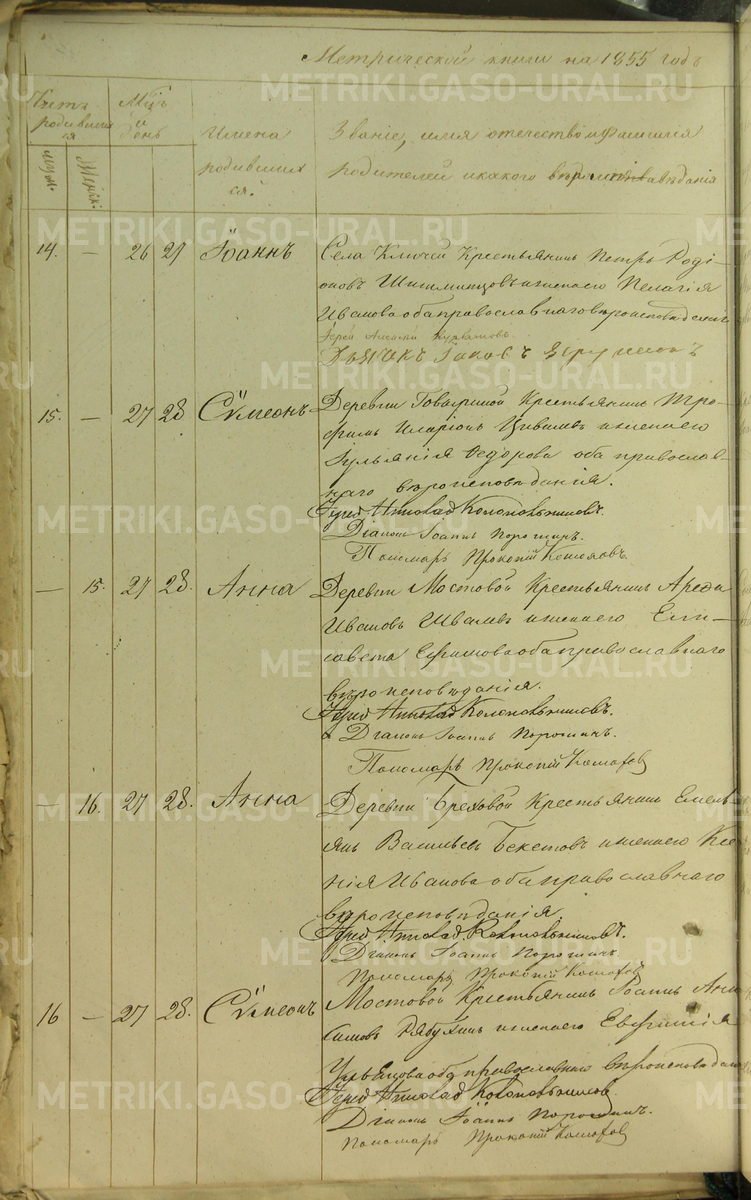 Метрической книги на 1855 годъ
Счетъ родившихся
Мѣсяцъ и день
Имена родившихся.
Званіе, имя отечество и фамилія
родителей и какого вѣроисповѣданія
муж.
женск.
14. — 26 27 Іоаннъ
Села Ключей Крестьянинъ Петръ Роді-
оновъ и жена его Пелагія
Иванова оба православнаго вѣроисповѣданія
Іерей Алексей
Дьячокъ Іаковъ
15. — 27 28 Сѵмеонъ
Деревни Крестьянинъ Тро-
фимъ Иларіон и жена его
Іульянія Ѳедорова оба православ-
наго вѣроисповѣданія.
Іерей Николай Колокольниковъ.
Діаконъ Іоаннъ Порошинъ.
Пономарь Прокопій
— 15. 27 28. Анна
Деревни Мостовой Крестьянинъ
Ивановъ и жена его Ели-
савета Ефимова оба православнаго
вѣроисповѣданія.
Іерей Николай Колокольниковъ.
Діаконъ Іоаннъ Порошинъ.
Пономарь Прокопій
— 16. 27 28. Анна
Деревни Бреховой Крестьянинъ Емель-
янъ Васильевъ Бекетовъ и жена его Ксе-
нія Иванова оба православнаго
вѣроисповѣданія.
Іерей Николай Колокольниковъ.
Діаконъ Іоаннъ Порошинъ
Пономарь Прокопій
16 — 27 28. Сѵмеонъ
Мостовой Крестьянинъ Іоаннъ Ани-
симовъ Рябухинъ и жена его Евфимія
оба православнаго вѣроисповѣданія
Іерей Николай Колокольниковъ.
Діаконъ Іоаннъ Порошинъ.
Пономарь Прокопій
METRIKI.GASO-URAL.RU